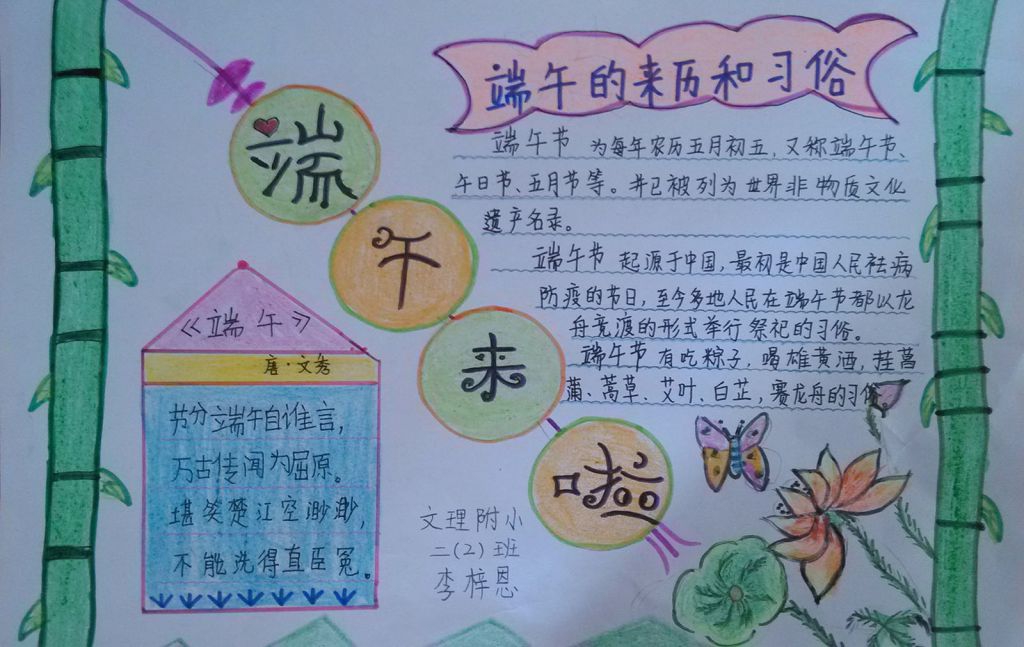 端午来啦
端午的来历和习俗
端午节 为每年农历五月初五,又称端午节、
午日节、五月节等。并已被列为世界非物质文化
遗产名录。
端午节 起源于中国,最初是中国人民祛病
防疫的节日,至今多地人民在端午节都以龙
舟竞渡的形式举行祭祀的习俗。
端午节 有吃粽子,喝雄黄酒,挂菖
蒲、蒿草、艾叶、白芷,赛龙舟的习俗。
《端午》
唐·文秀
节分端午自谁言,
万古传闻为屈原。
堪笑楚江空渺渺,
不能洗得直臣冤。
文理附小
二(2)班
李梓恩